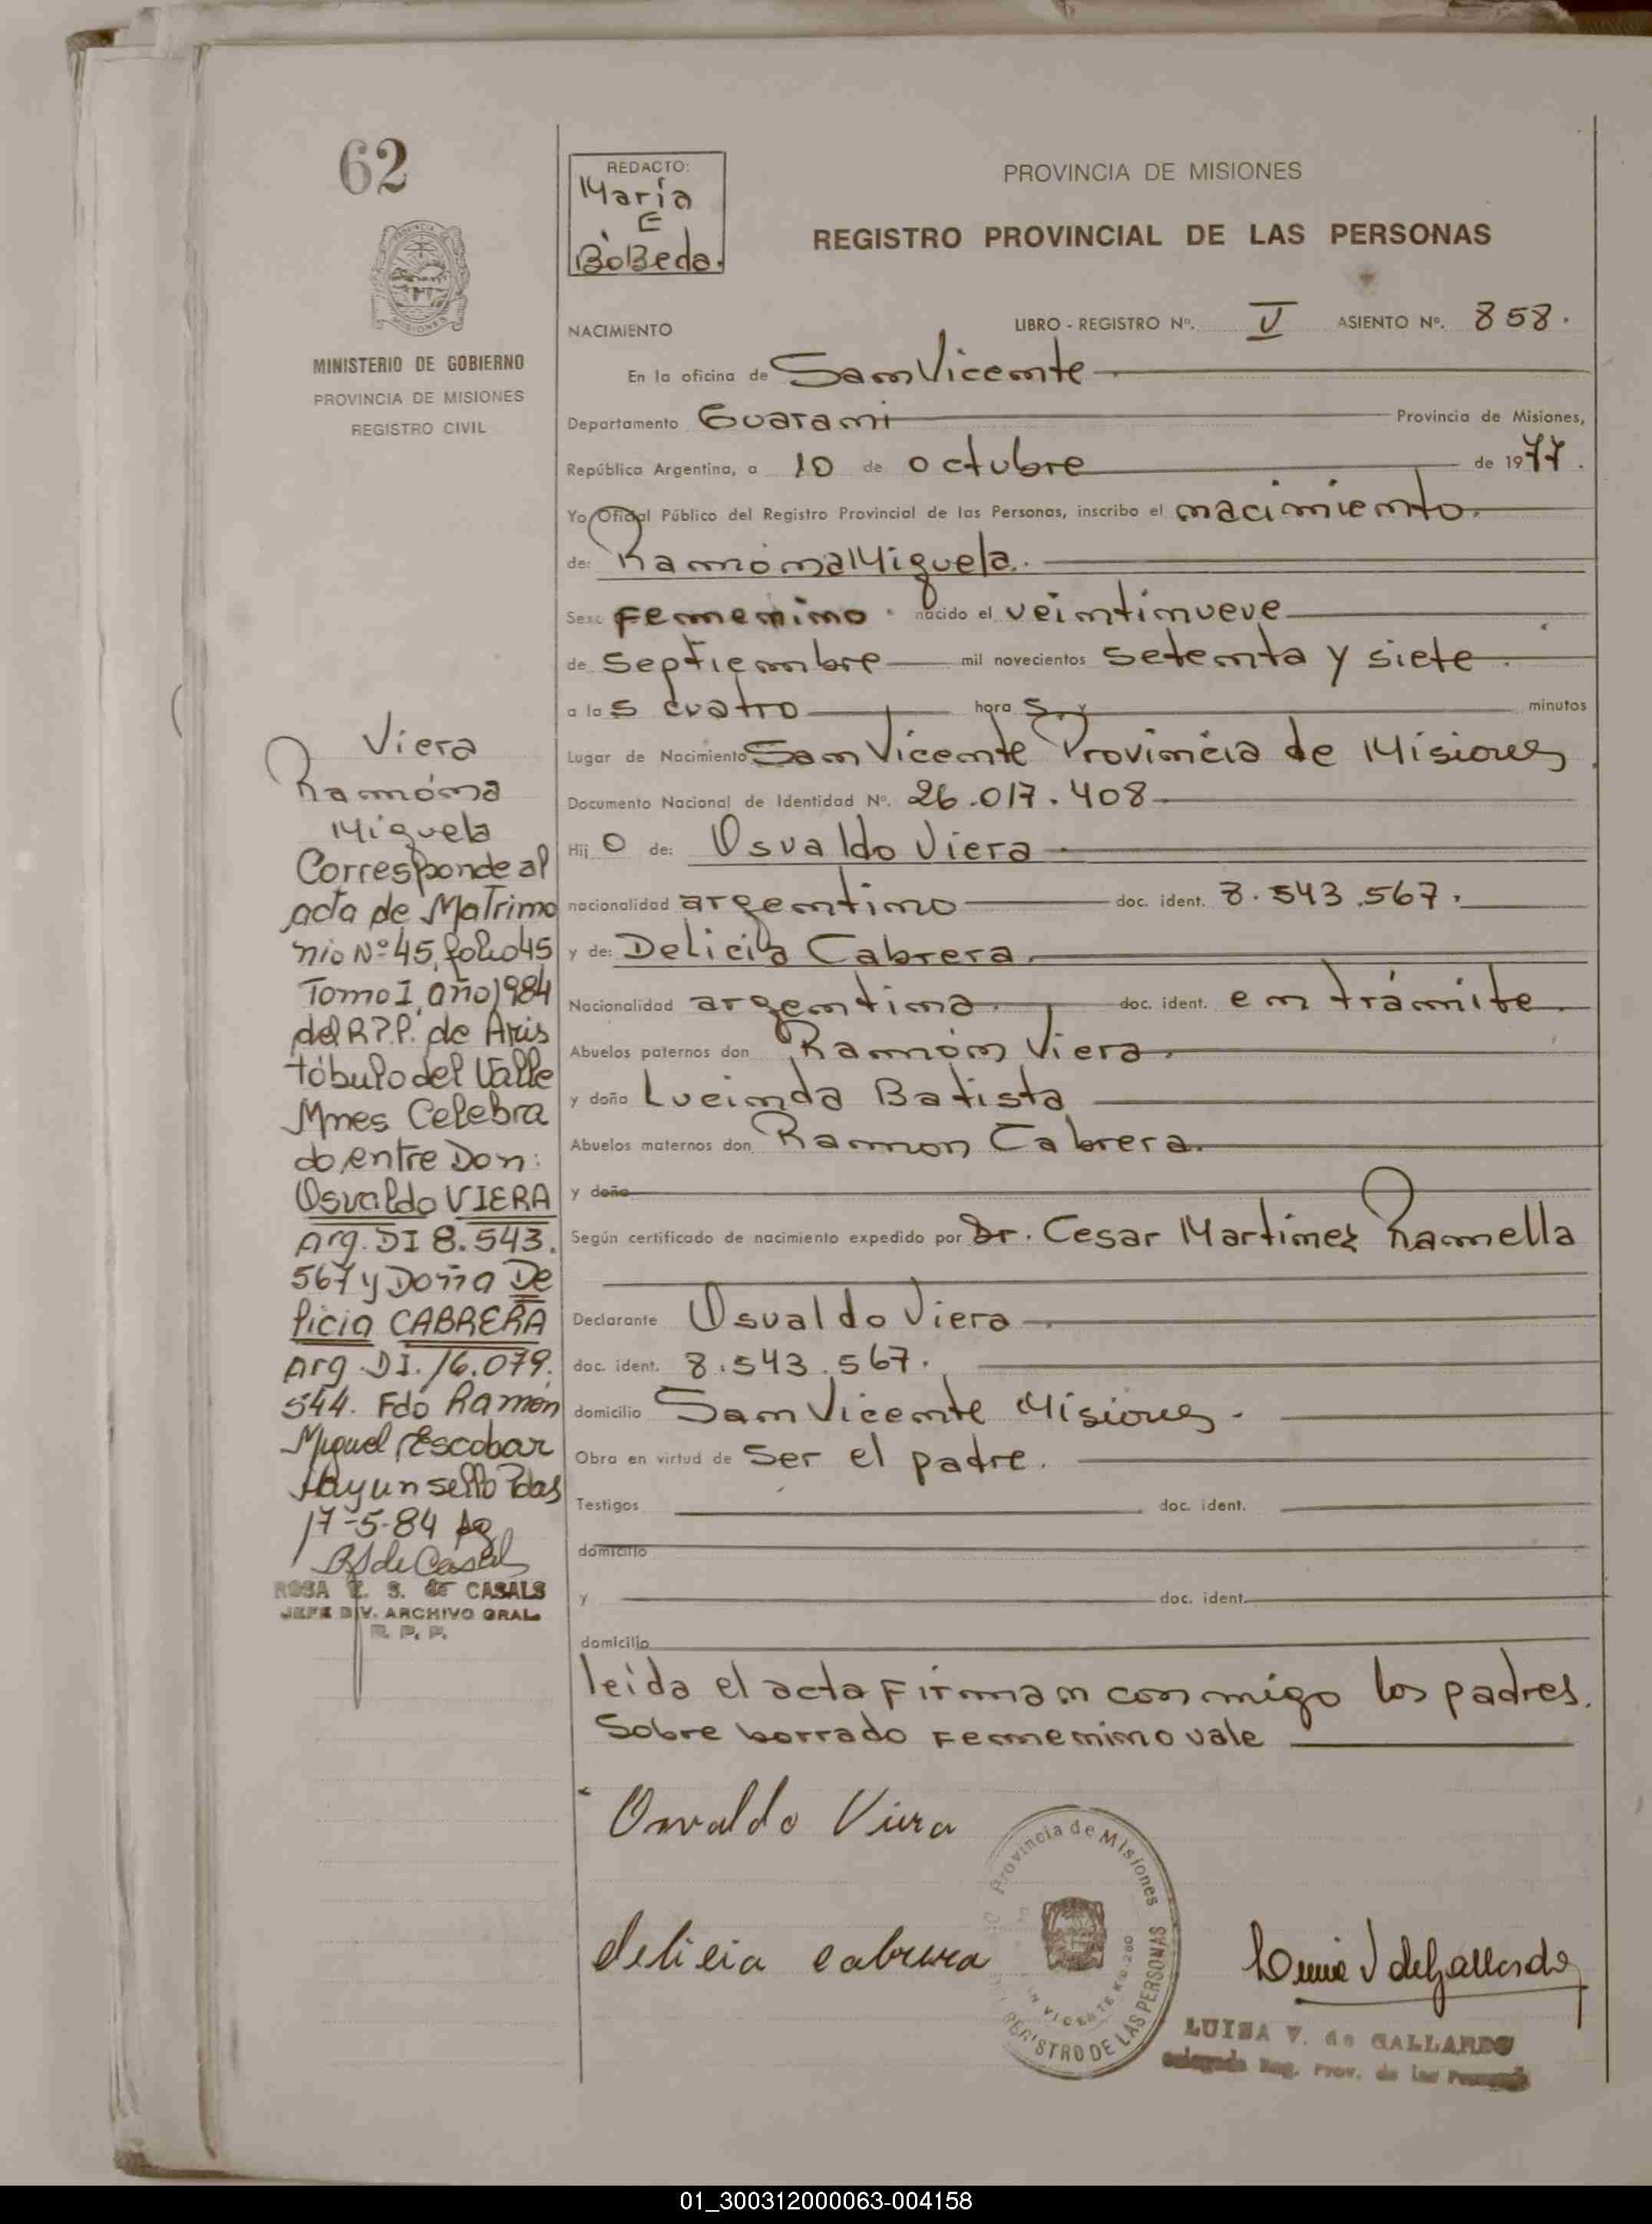 62
PROVINCIA DE MISIONES
MINISTERIO DE GOBIERNO
PROVINCIA DE MISIONES
REGISTRO CIVIL
REDACTO:
María
E
BoBeda.
PROVINCIA DE MISIONES
REGISTRO PROVINCIAL DE LAS PERSONAS
NACIMIENTO LIBRO - REGISTRO Nº. V ASIENTO Nº. 858.
En la oficina de San Vicente
Departamento Guarani Provincia de Misiones,
República Argentina, a 10 de octubre de 1977.
Yo Oficial Público del Registro Provincial de las Personas, inscribo el nacimiento.
de: Ramóna Miguela.
Sexo Femenino. nacido el veintinueve
de Septiembre mil novecientos setenta y siete.
a las cuatro horas, y minutos
Lugar de Nacimiento San Vicente Provincia de Misiones
Documento Nacional de Identidad Nº. 26.017.408
Hijo de: Osvaldo Viera
nacionalidad argentino doc. ident. 8.543.567.
y de: Delicia Cabrera.
Nacionalidad argentina. doc. ident. en trámite.
Abuelos paternos don Ramón Viera.
y doña Lucinda Batista
Abuelos maternos don Ramon Cabrera.
y doña
Según certificado de nacimiento expedido por Dr. Cesar Martinez Ramella
Declarante Osvaldo Viera
doc. ident. 8.543.567.
domicilio San Vicente Misiones.
Obra en virtud de ser el padre.
Testigos doc. ident.
domicilio
y doc. ident.
domicilio
leída el acta Firman conmigo los padres.
Sobre borrado Femenino vale
Viera
Ramóna
Miguela
Corresponde al
acta de Matrimo
nio Nº 45, folio 45
Tomo I, año 1984
del R.P.P. de Aris
tóbulo del Valle
Mnes Celebra
do entre Don:
Osvaldo VIERA
Arg. DI 8.543.
567 y Doña De
licia CABRERA
Arg. DI. 16.079.
544. Fdo Ramón
Miguel Escobar
Hay un sello Pdas
17-5-84
RS de Casals
ROSA E. S. de CASALS
JEFE DIV. ARCHIVO GRAL
R. P. P.
Osvaldo Viera
delicia cabrera
Provincia de Misiones
REGISTRO DE LAS PERSONAS
Luisa V de Gallardo
LUISA V. de GALLARDO
Delegada Reg. Prov. de las Personas
01_300312000063-004158